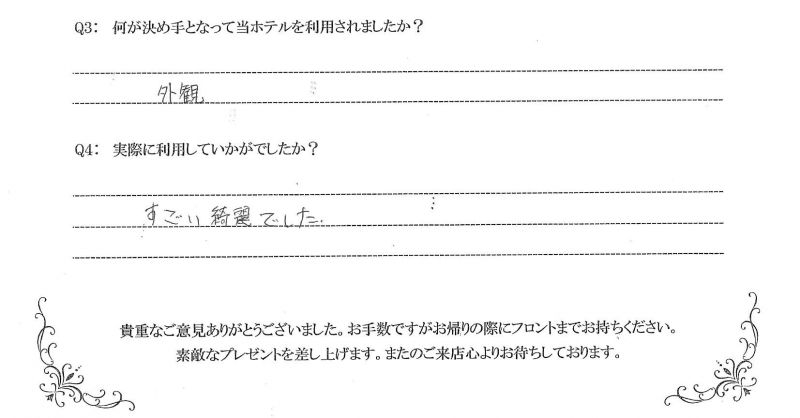 Q3: 何が決め手となって当ホテルを利用されましたか？
外観
Q4: 実際に利用していかがでしたか？
すごい綺麗でした.
貴重なご意見ありがとうございました。お手数ですがお帰りの際にフロントまでお持ちください。
素敵なプレゼントを差し上げます。またのご来店心よりお待ちしております。